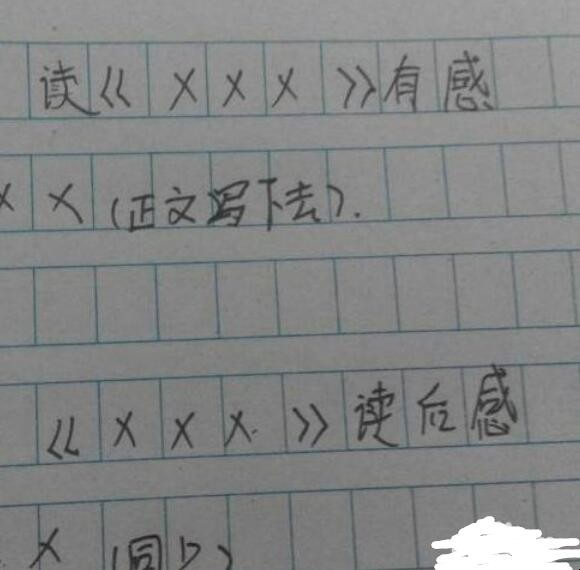 读《×××》有感
××(正文写下去).
《×××》读后感
×(同上)